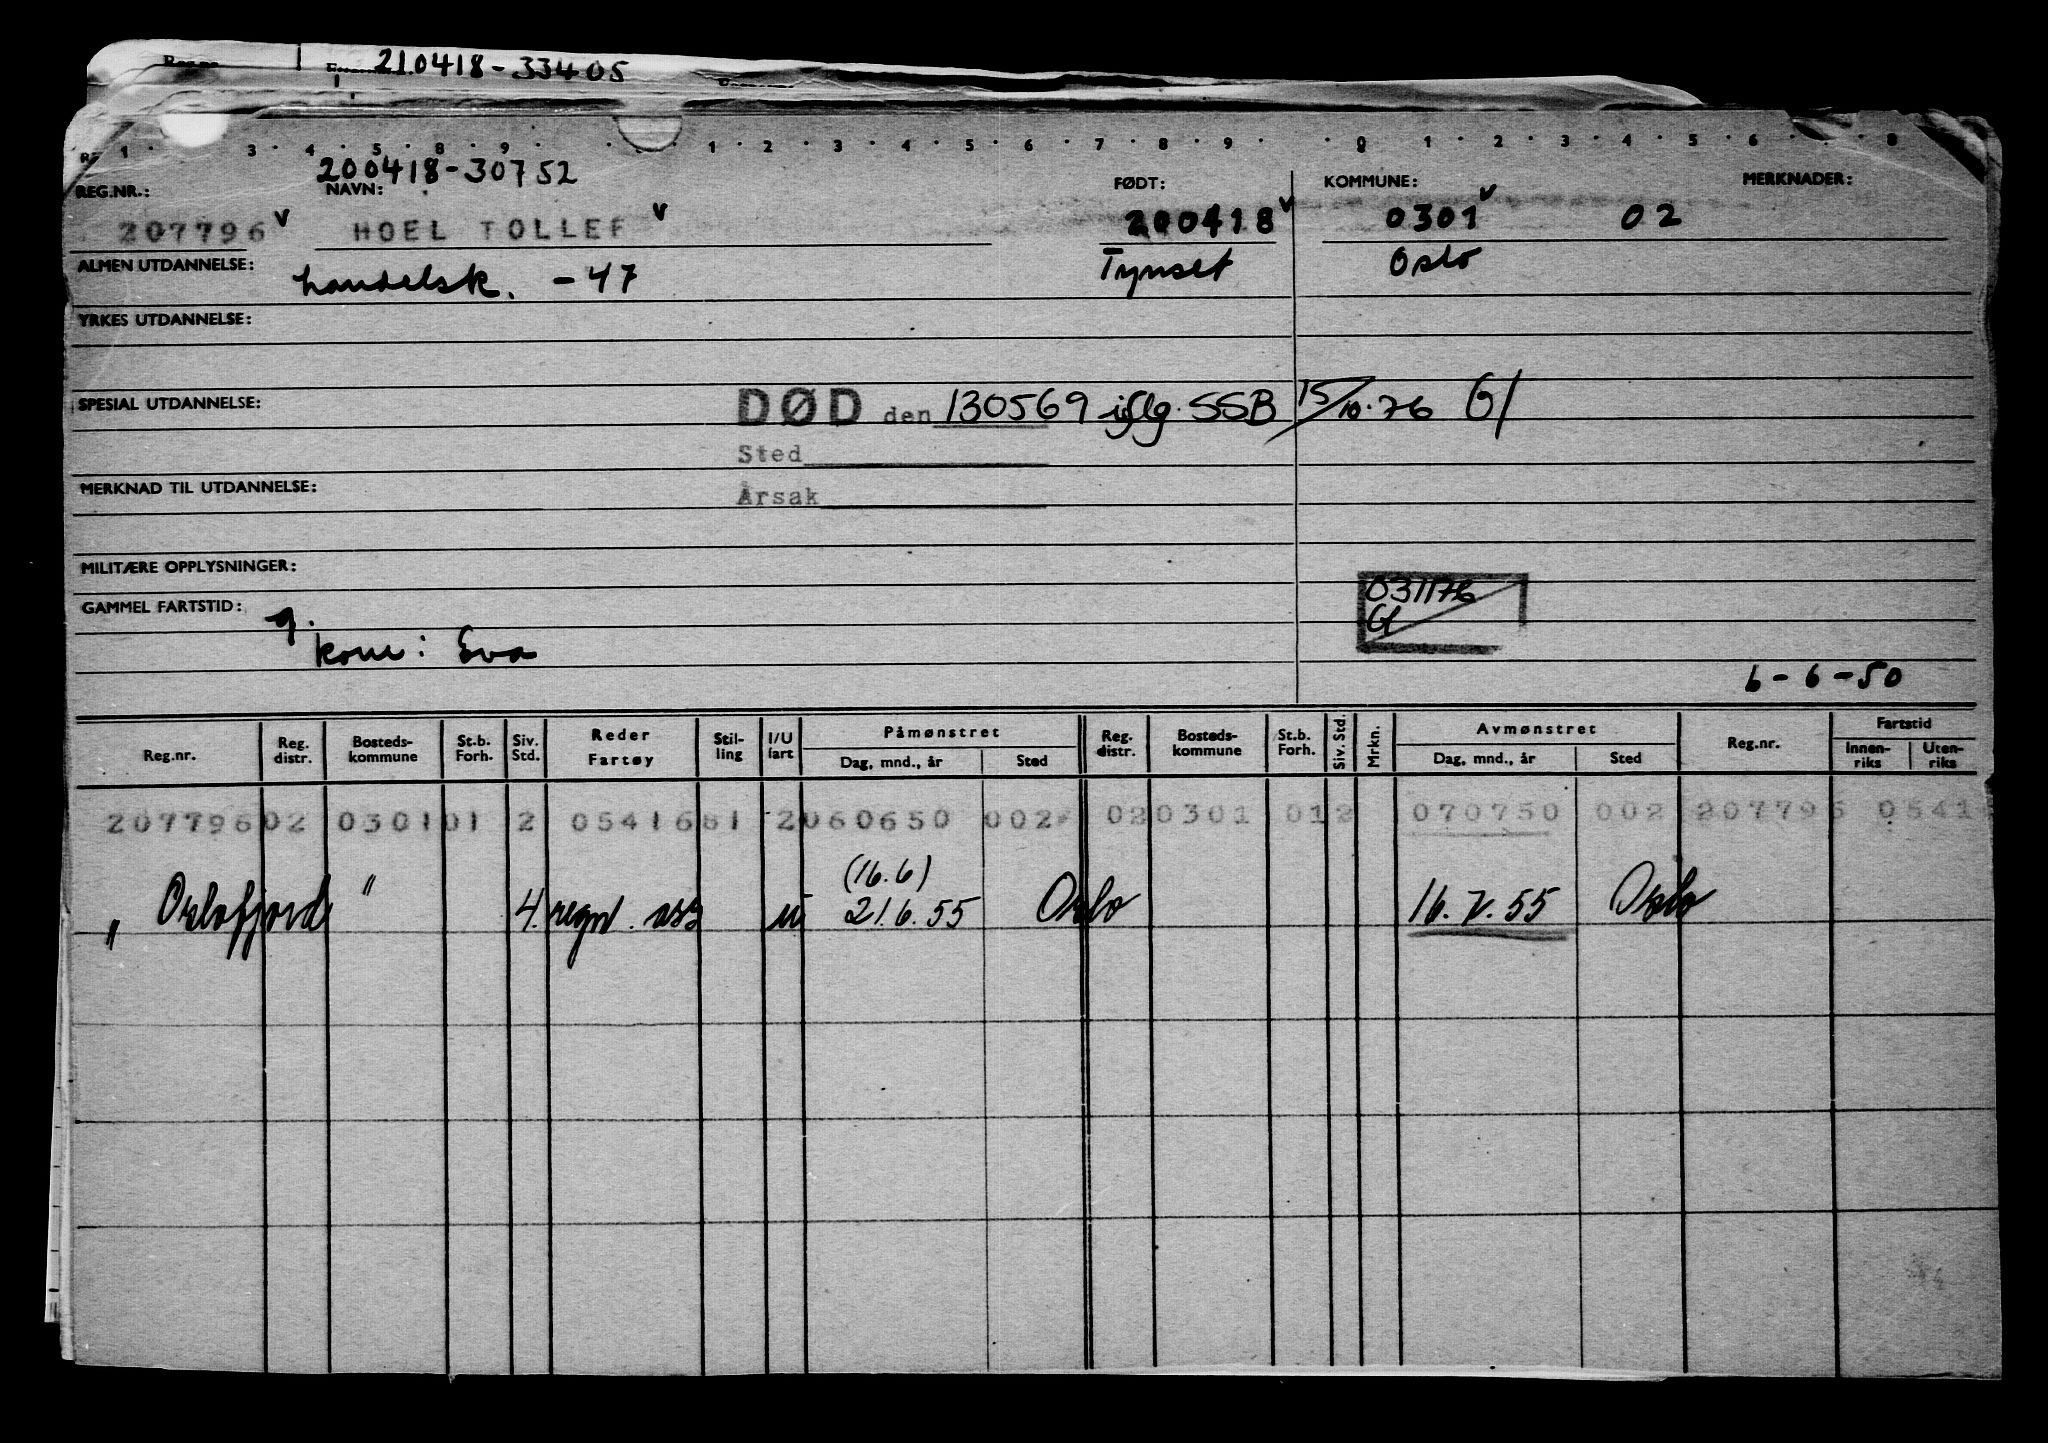 210418-33405
1 3 4 5 8 9 1 2 3 4 5 6 7 8 9 0 1 2 3 4 5 6 8
200418-30752
REG.NR.: NAVN: FØDT: KOMMUNE: MERKNADER:
207796 v HOEL TOLLEF v 200418 v 0301 v 02
ALMEN UTDANNELSE: handelsk. - 47 Tynset Oslo
YRKES UTDANNELSE:
SPESIAL UTDANNELSE: DØD den 130569 iflg. SSB 15/10.76 Gl
Sted
MERKNAD TIL UTDANNELSE: Årsak
MILITÆRE OPPLYSNINGER:
031176
GAMMEL FARTSTID: g. Gl
kone: Eva
6-6-50
Reg.nr. Reg. distr. Bosteds-kommune St.b. Forh. Siv. Std. Reder Fartøy Stil-ling I/U fart Påmønstret Dag, mnd., år Sted Reg. distr. Bosteds-kommune St.b. Forh. Siv. Std. Mrkn. Avmønstret Dag, mnd., år Sted Reg.nr. Fartstid Innen-riks Uten-riks
207796 02 0301 01 2 05416 81 2 060650 002 02 0301 01 2 070750 002 207796 0541
(16.6)
" Oslofjord " 4. regnf. ass u 21.6.55 Oslo 16.7.55 Oslo